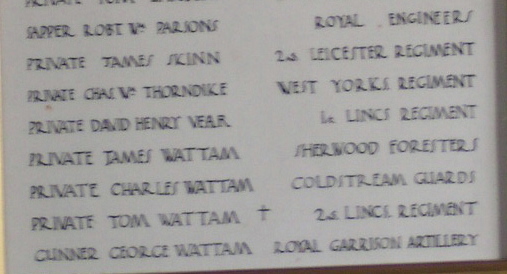 SAPPER ROBT Wm PARSONS ROYAL ENGINEERS
PRIVATE JAMES SKINN 2nd LEICESTER REGIMENT
PRIVATE CHAS Wm THORNDIKE WEST YORKS REGIMENT
PRIVATE DAVID HENRY VEAR LINCS REGIMENT
PRIVATE JAMES WATTAM SHERWOOD FORESTERS
PRIVATE CHARLES WATTAM COLDSTREAM GUARDS
PRIVATE TOM WATTAM † 2nd LINCS. REGIMENT
GUNNER GEORGE WATTAM ROYAL GARRISON ARTILLERY